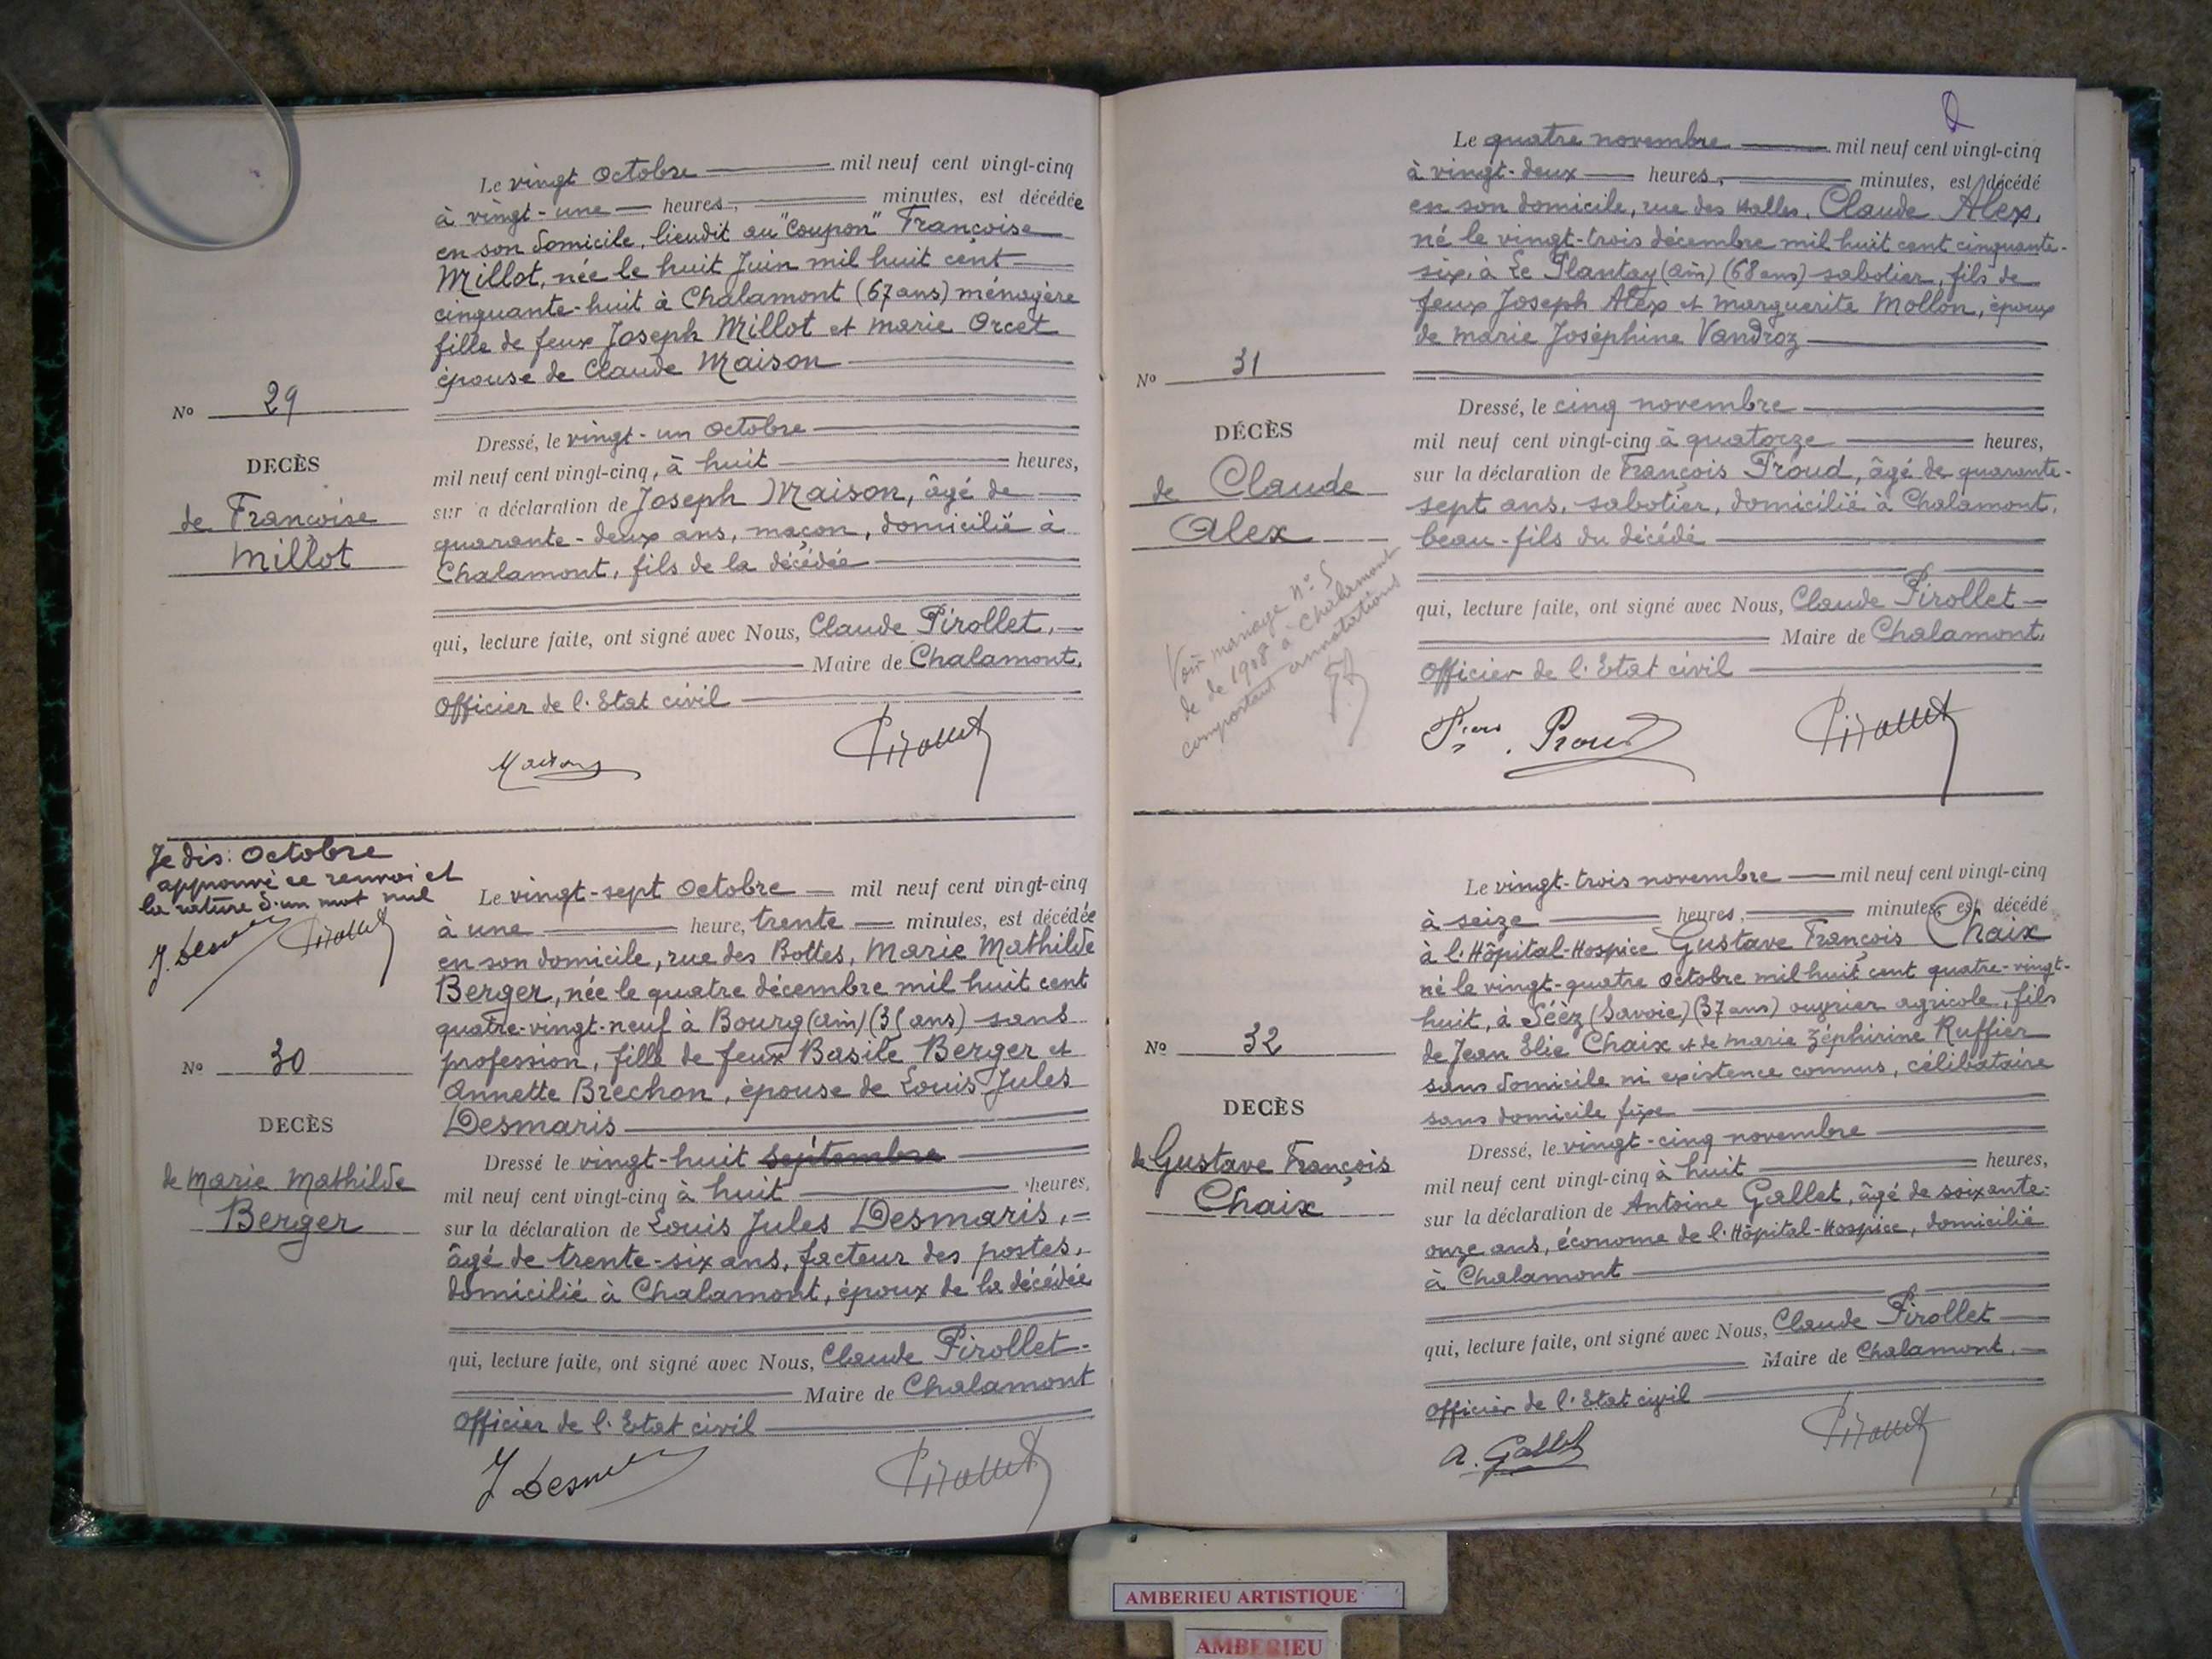 Le vingt Octobre mil neuf cent vingt-cinq
à vingt-une heures, minutes, est décédée
en son domicile, lieudit au "Coupon" Françoise
Millot, née le huit Juin mil huit cent
cinquante-huit à Chalamont (67 ans) ménagère
fille de feux Joseph Millot et Marie Orcet
épouse de Claude Maison
No 29
DECÈS
de Françoise
Millot
Dressé, le vingt-un Octobre
mil neuf cent vingt-cinq, à huit heures,
sur a déclaration de Joseph Maison, âgé de
quarante-deux ans, maçon, domicilié à
Chalamont, fils de la décédée
qui, lecture faite, ont signé avec Nous, Claude Pirollet,
Maire de Chalamont,
Officier de l'Etat civil
Pirollet
Je dis: Octobre
approuvé ce renvoi et
la rature d'un mot nul
J. Desmaris Pirollet
Le vingt-sept Octobre mil neuf cent vingt-cinq
à une heure, trente minutes, est décédée
en son domicile, rue des Bottes, Marie Mathilde
Berger, née le quatre décembre mil huit cent
quatre-vingt-neuf à Bourg (Ain) (35 ans) sans
profession, fille de feux Basile Berger et
Annette Brechon, épouse de Louis Jules
Desmaris
No 30
DECÈS
de Marie Mathilde
Berger
Dressé le vingt-huit septembre
mil neuf cent vingt-cinq à huit heures,
sur la déclaration de Louis Jules Desmaris,
âgé de trente-six ans, facteur des postes,
domicilié à Chalamont, époux de la décédée
qui, lecture faite, ont signé avec Nous, Claude Pirollet
Maire de Chalamont
Officier de l'Etat civil
J Desmaris Pirollet
Le quatre novembre mil neuf cent vingt-cinq
à vingt-deux heures, minutes, est décédé
en son domicile, rue des Halles, Claude Alex,
né le vingt-trois décembre mil huit cent cinquante-
six, à Le Plantay (Ain) (68 ans) sabotier, fils de
feux Joseph Alex et Marguerite Mollon, époux
de Marie Joséphine Vandroz
No 31
DÉCÈS
de Claude
Alex
Voir mariage N° 5
de de 1908 à Chalamont
comportant annotations
Dressé, le cinq novembre
mil neuf cent vingt-cinq à quatorze heures,
sur la déclaration de François Proud, âgé de quarante-
sept ans, sabotier, domicilié à Chalamont,
beau-fils du décédé
qui, lecture faite, ont signé avec Nous, Claude Pirollet
Maire de Chalamont,
Officier de l'Etat civil
Proud Pirollet
Le vingt-trois novembre mil neuf cent vingt-cinq
à seize heures, minutes, est décédé
à l'Hôpital-Hospice Gustave François Chaix
né le vingt-quatre Octobre mil huit cent quatre-vingt-
huit, à Séez (Savoie) (37 ans) ouvrier agricole, fils
de Jean Elie Chaix et de Marie Zéphirine Ruffier
sans domicile ni existence connus, célibataire
sans domicile fixe
No 32
DECÈS
de Gustave François
Chaix
Dressé, le vingt-cinq novembre
mil neuf cent vingt-cinq à huit heures,
sur la déclaration de Antoine Gallet, âgé de soixante-
onze ans, économe de l'Hôpital-Hospice, domicilié
à Chalamont
qui, lecture faite, ont signé avec Nous, Claude Pirollet
Maire de Chalamont,
Officier de l'Etat civil
A. Gallet Pirollet
AMBERIEU ARTISTIQUE
AMBERIEU